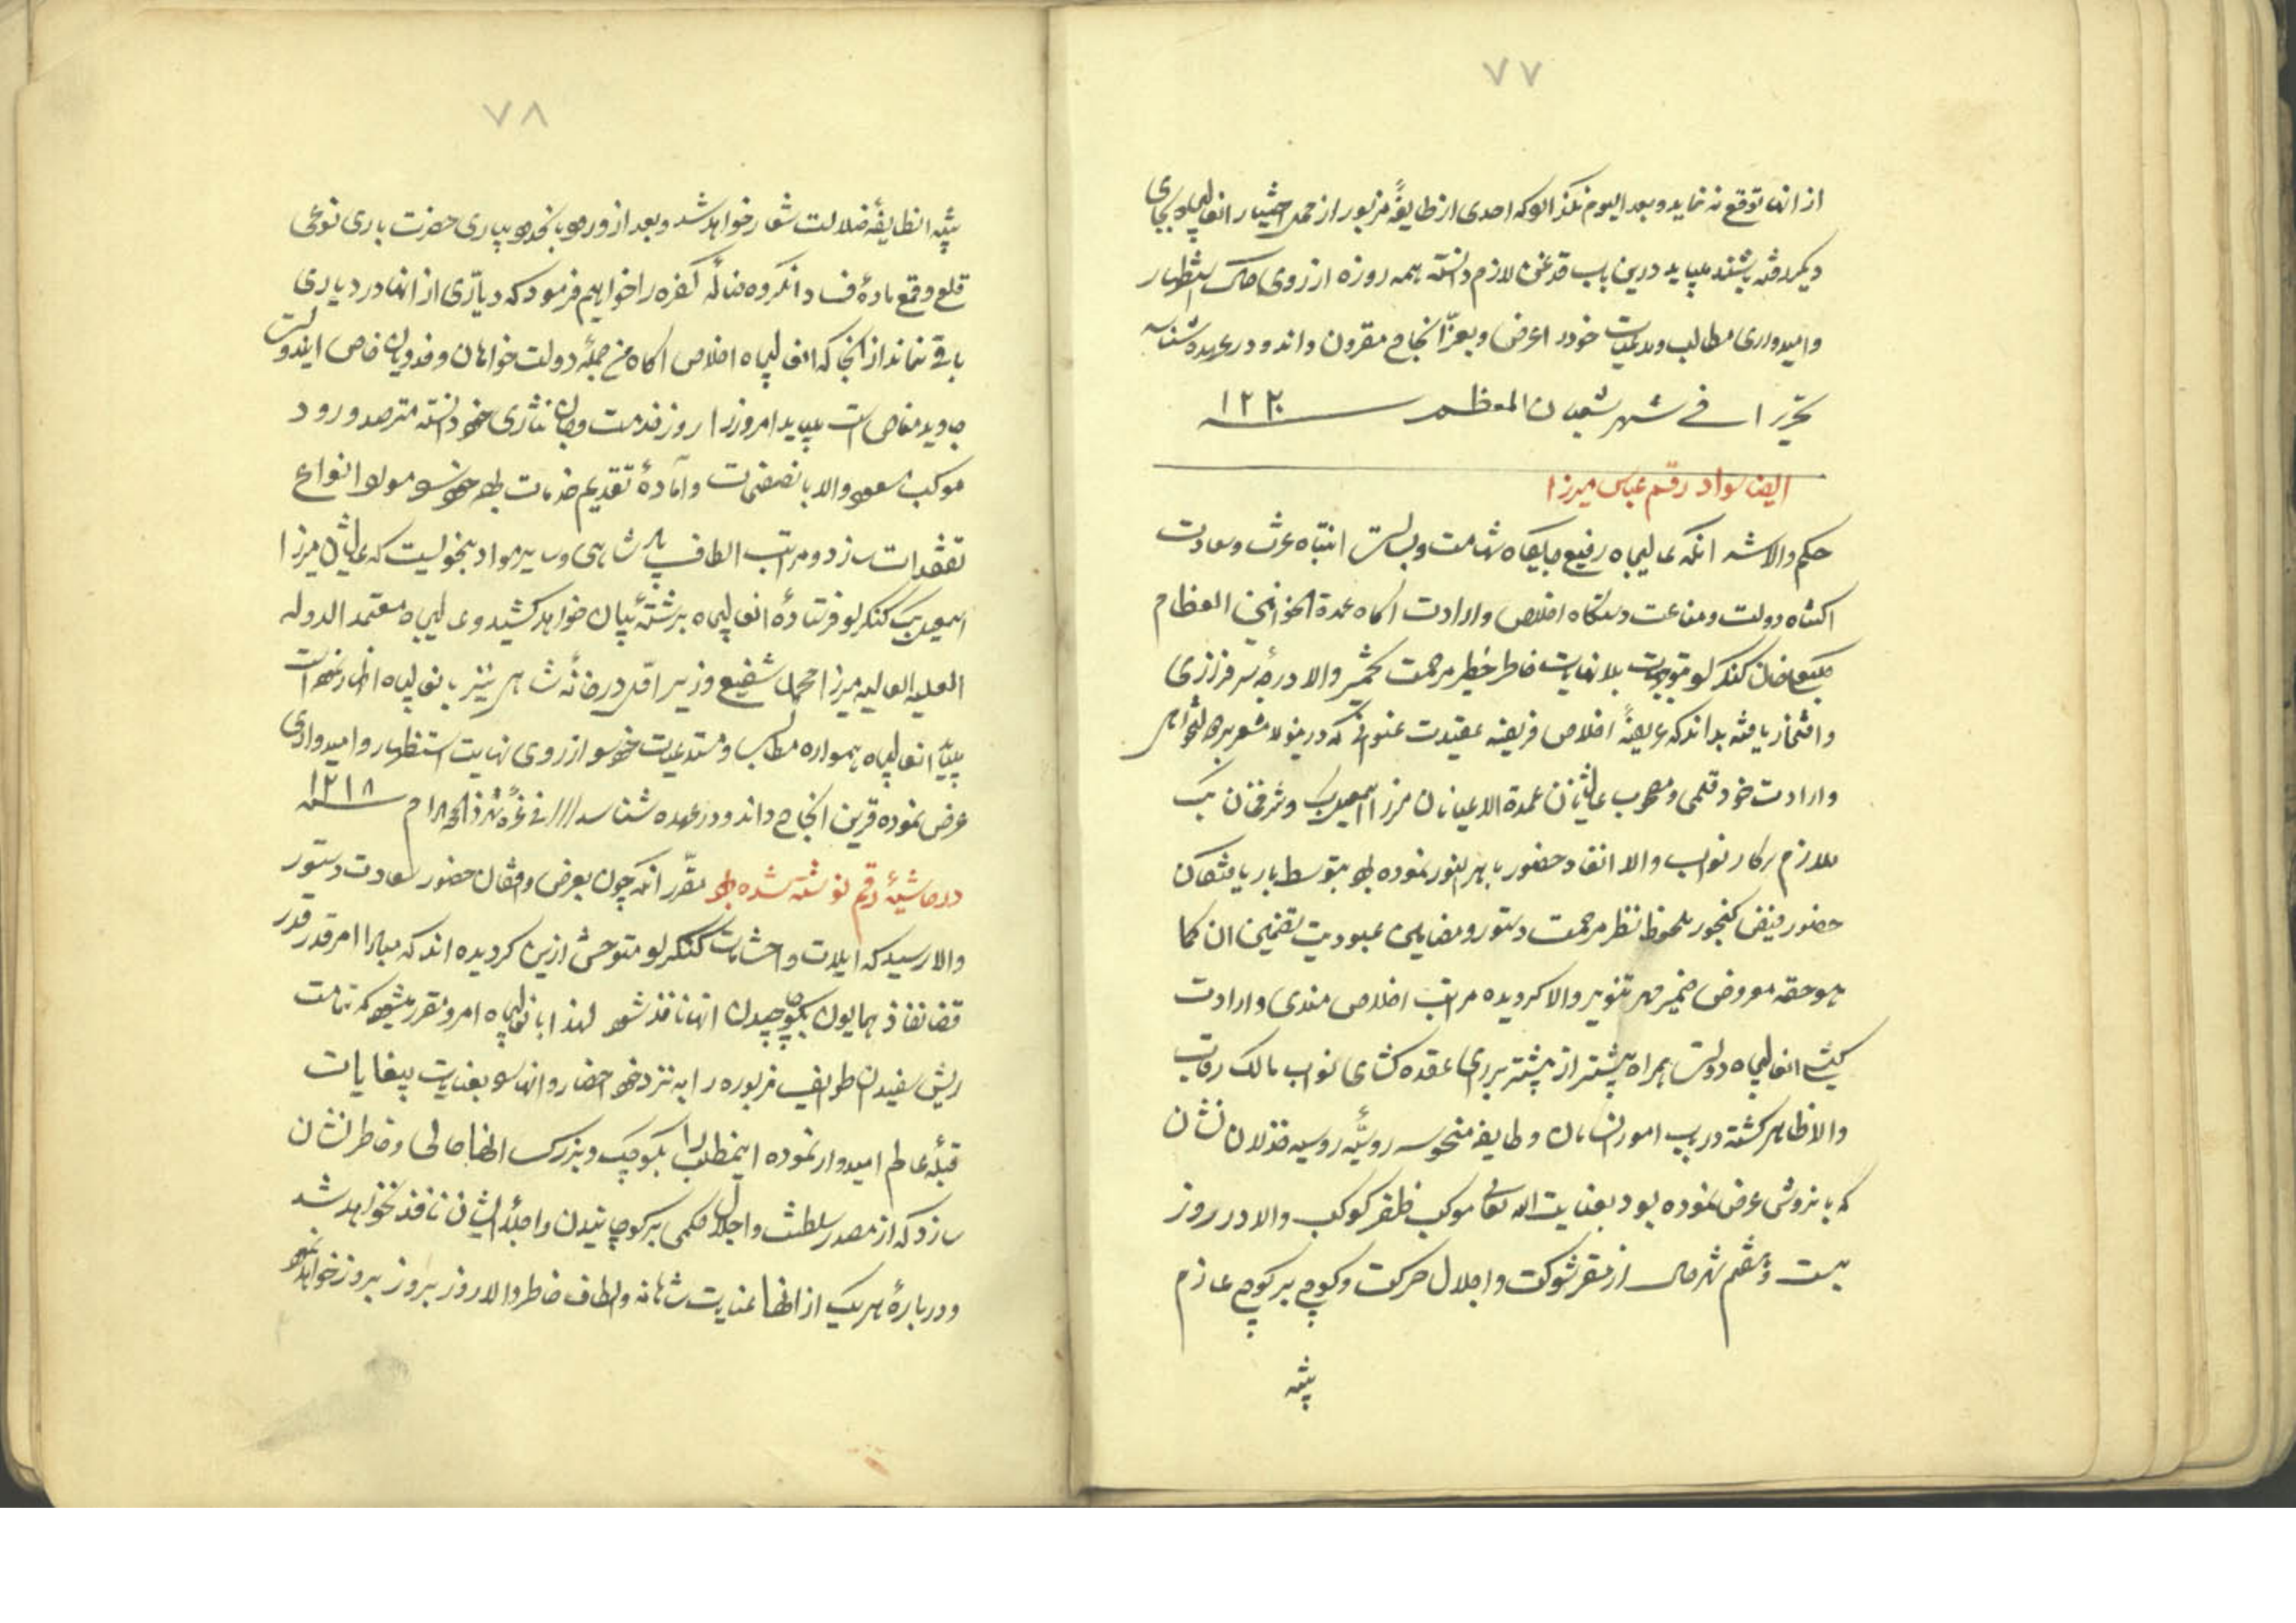 ۷۷
از انها توقع نه نماید و بعد الیوم نگذارد که احدی از طایفهٔ مزبور از حمل اختیار انعالیجاه بجای
دیگر رفته باشند میباید درین باب قدغن لازم دانسته همه روزه از روی استظهار
و امیدواری مطالب و مدعیات خود را عرض و بعزّ انجاح مقرون داند و در عهده شناسد
تحریرا فی شهر شعبان المعظم سنه ۱۲۲۰
ایضا سواد رقم عباس میرزا
حکم والا شد انکه عالیجاه رفیع جایکاه شهامت و بسالت انتباه عزت و سعادت
اکتناه دولت و مناعت دستکاه اخلاص و ارادت اکاه عمدة الخوانین العظام
خان کنکرلو بتوجهات بلا نهایات خاطر خطیر مرحمت تخمیر والا درجهٔ سرفرازی
و افتخار یافته بداند که عریضهٔ اخلاص فریضه عقیدت عنوانی که درینولا مشعر بر دولتخواهی
و ارادت خود قلمی و مصحوب عالیشانان عمدة الاعیانان میرزا اسمعیل بیک و شرفخان بیک
ملازم سرکار نواب والا انفاد حضور باهر النور نموده بود بتوسط باریافتکان
حضور فیض کنجور ملحوظ نظر مرحمت دستور و مضامین عبودیت تضمین ان کما
هو حقه معروض ضمیر مهر تنویر والا کردیده مراتب اخلاص مندی و ارادت
کیشی انعالیجاه دولت همراه بیشتر از پیشتر بر رای عقده کشای نواب مالک رقاب
والا ظاهر کشته در باب امور انسامان و طایفه منحوسه روسیّه روسیه خذلان نشان
که بانروش عرض نموده بود بعنایت الله تعالی موکب ظفر کوکب والا در روز
بیست و هفتم شهر حال از مقر شوکت و اجلال حرکت و کوچ بر کوچ عازم
تنبیه
۷۸
تنبیه انطایفهٔ ضلالت شعار خواهد شد و بعد از ورود بانحدود بیاری حضرت باری نوعی
قلع و قمع مادهٔ فساد انکروه ضالّه کفره را خواهیم فرمود که دیّاری از انها در دیاری
باقی نماند از انجا که انعالیجاه اخلاص اکاه من جملهٔ دولت خواهان و فدویان خاص ایندولت
جاوید مناص است میباید امروز را روز خدمت و جان نثاری خود دانسته مترصد ورود
موکب مسعود والا بانصفحات و آمادهٔ تقدیم خدمات بوده خود را مورد انواع
تفقدات سازد و مراتب الطاف پادشاهی و سایر مواد بنحویست که عالیشان میرزا
اسمعیل بیک کنکرلو فرستادهٔ انعالیجاه برشتهٔ بیان خواهد کشید و عالیجاه معتمد الدوله
العلیه العالیه میرزا محمد شفیع وزیر اوّل درخانهٔ شاهی نیز بانعالیجاه اظهار نموده است
میباید انعالیجاه همواره مطالب و مستدعیات خود را از روی نهایت استظهار و امیدواری
عرض نموده قرین انجاح داند و در عهده شناسد /// فی غرّه شهر ذالحجة الحرام سنه ۱۲۱۸
در حاشیهٔ رقم نوشته شده بود مقرّر انکه چون بعرض واقفان حضور سعادت دستور
والا رسید که ایلات و احشامات کنکرلو متوحش ازین کردیده اند که مبادا امر قدر قدر
قضا نفاذ همایون بکوچیدن انها نافذ شود لهذا بانعالیجاه امر و مقرر میشود که تمامت
ریش سفیدان طوایف مزبوره را به نزد خود احضار و انها را بعنایت بیغایات
قبلهٔ عالم امیدوار نموده اینمطلب را بکوچک و بزرک انها حالی و خاطر نشان
سازد که از مصدر سلطنت و اجلال حکمی بر کوچانیدن و اجلأ ایشان نافذ نخواهد شد
و دربارهٔ هر یک از انها عنایت شاهانه و الطاف خاطر والا روز بروز بروز خواهد نمود